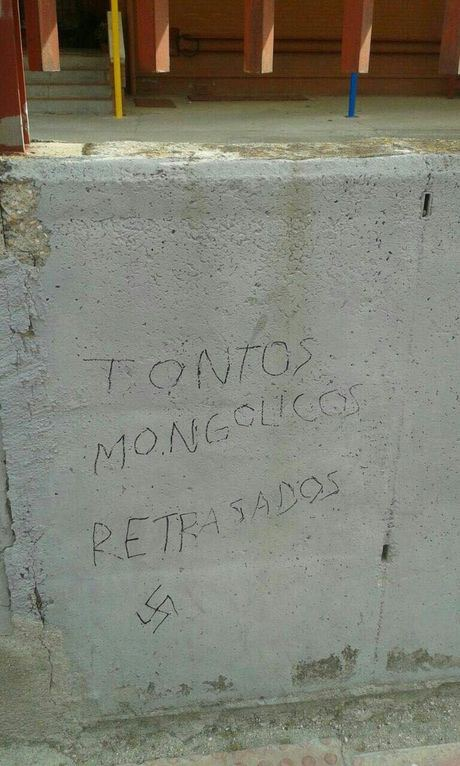 TONTOS
MONGOLICOS
RETRASADOS